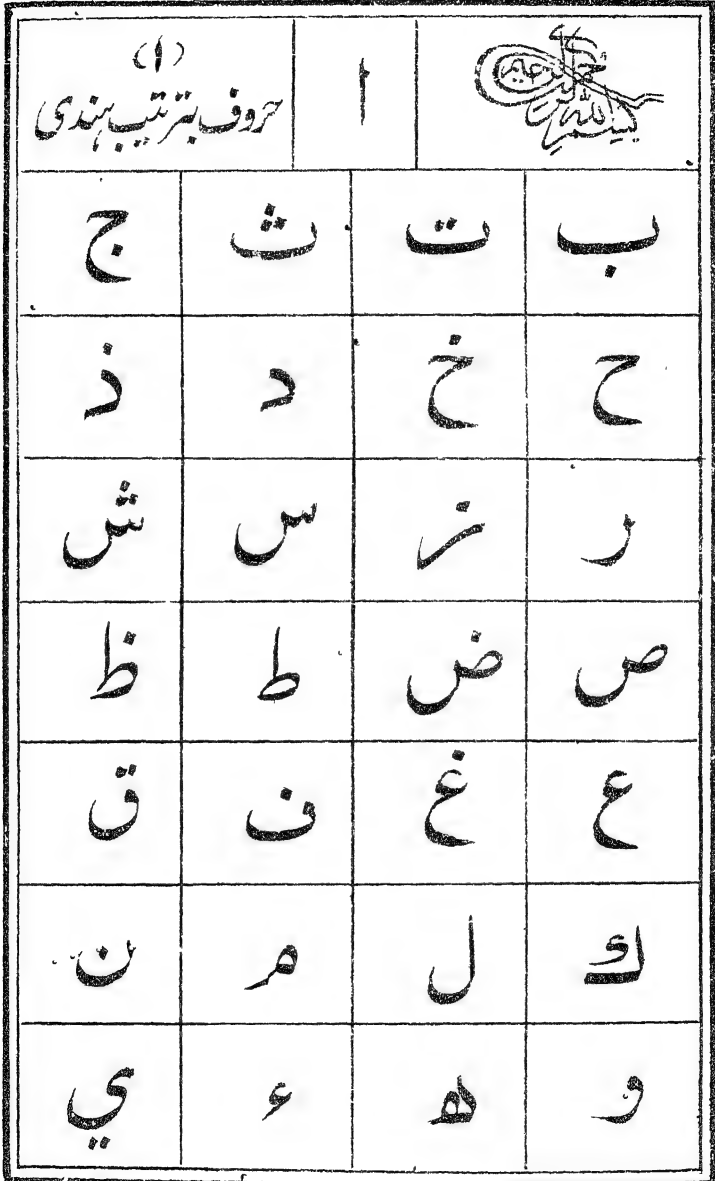 بسم الله الرحمن الرحيم
ا
(۱)
حروف بترتیب ہندی
ب ت ث ج
ح خ د ذ
ر ز س ش
ص ض ط ظ
ع غ ف ق
ك ل م ن
و ه ء ي